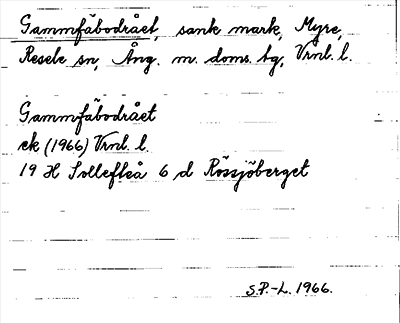 Gammfäbodrået, sank mark, Myre,
Resele sn, Ång. m. doms. tg, Vrnl. l.
Gammfäbodrået
ek (1966) Vrnl. l.
19 H Sollefteå 6 d Rössjöberget
S.P.-L. 1966.